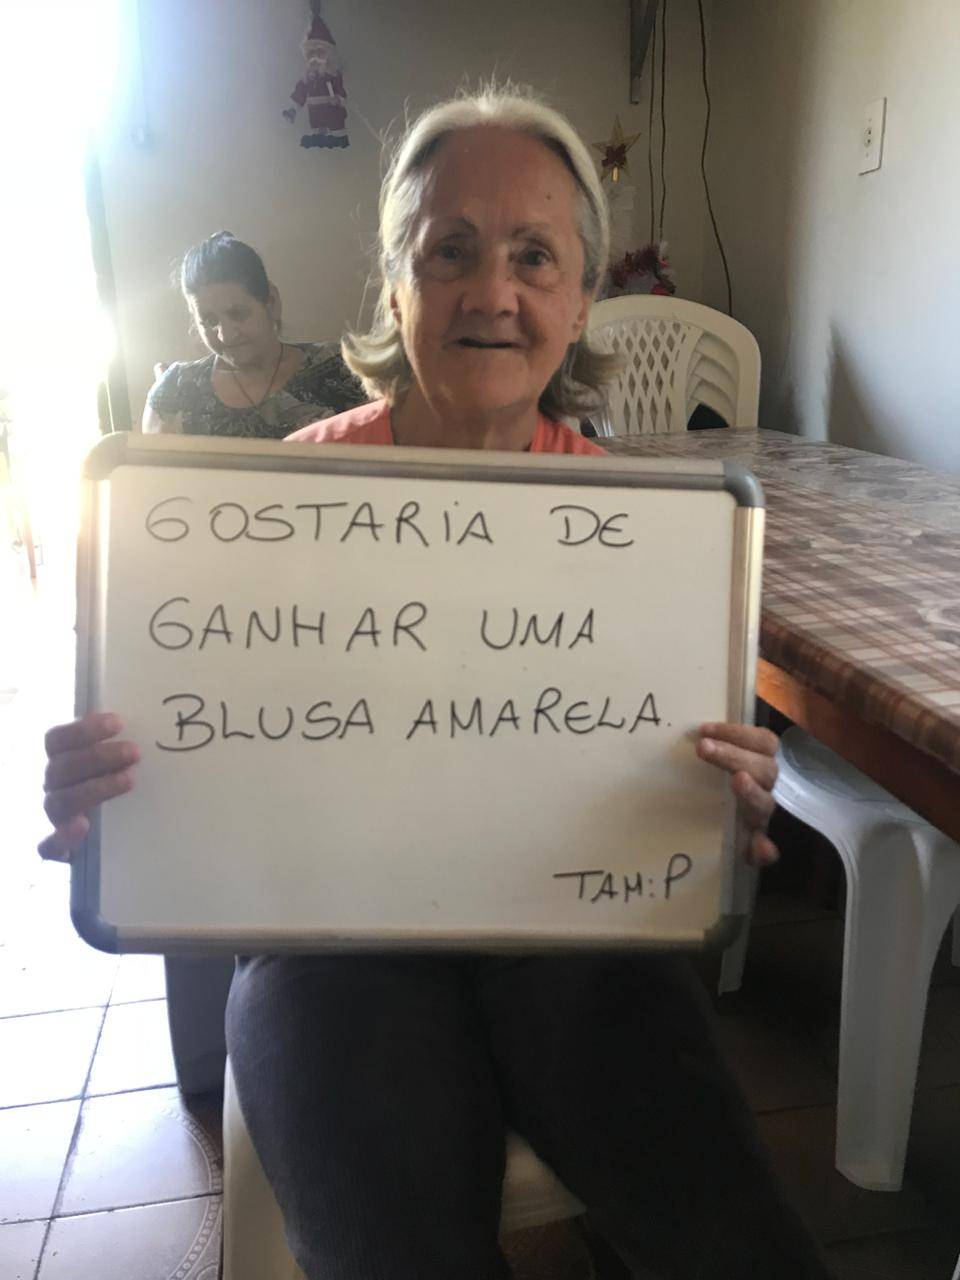 GOSTARiA DE
GANHAR UMA
BLUSA AMARELA.
TAM: P